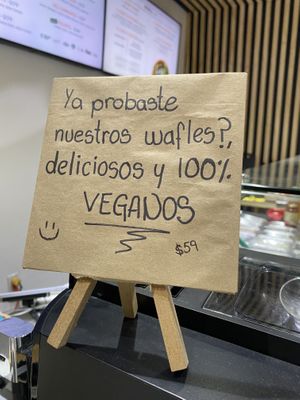 Ya probaste
nuestros wafles?,
deliciosos y 100%
VEGANOS
$59